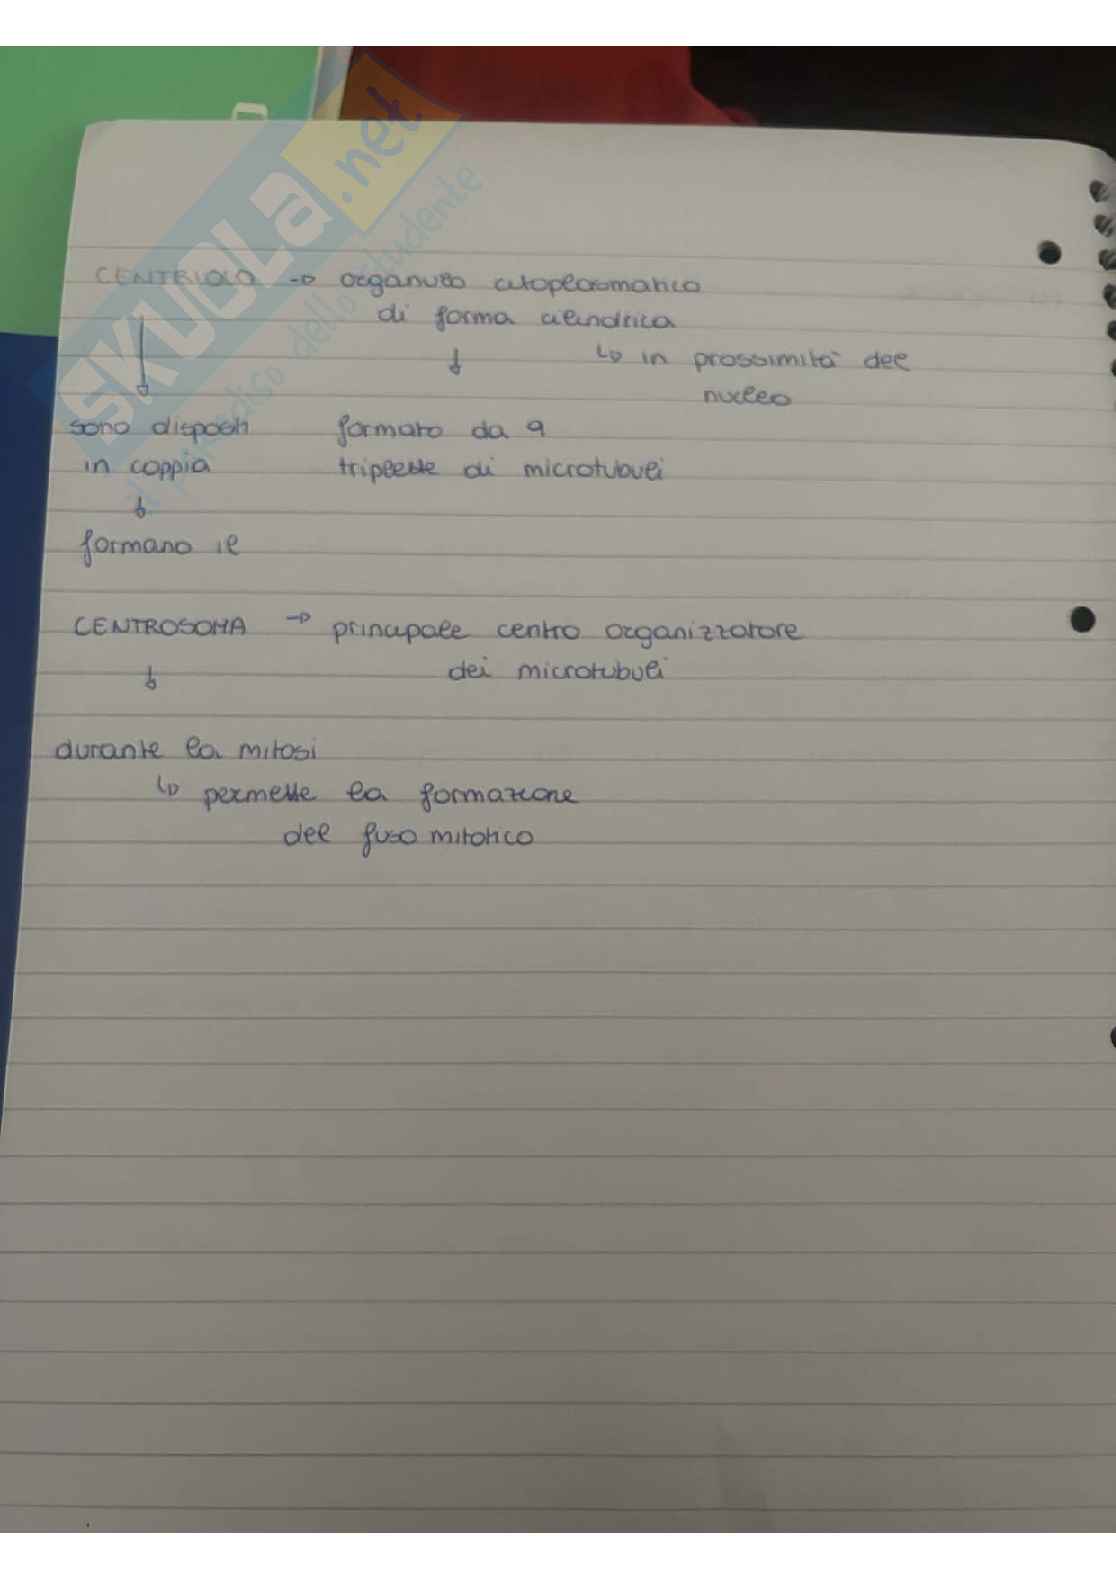 SKUOLA.net
il paradiso dello studente
CENTRIOLO → organulo citoplasmatico
di forma cilindrica
↳ in prossimità del
nucleo
sono disposti formato da 9
in coppia triplette di microtubuli
↓
formano il
CENTROSOMA → principale centro organizzatore
↓ dei microtubuli
durante la mitosi
↳ permette la formazione
del fuso mitotico